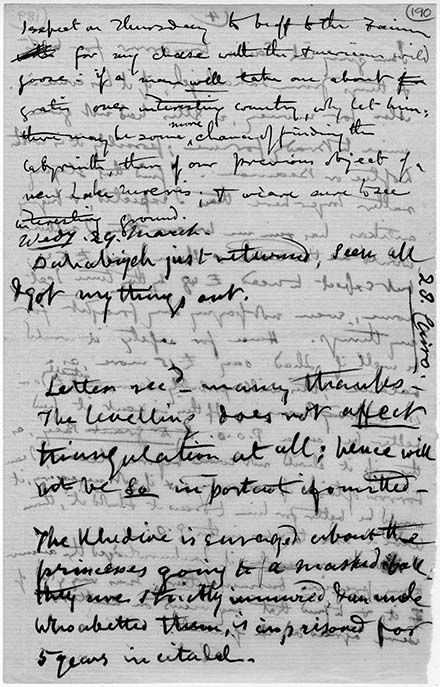 190
I expect on Thursday to be off to the Faium
for my chase with the American wild
goose: if a man will take one about
gratis over interesting country, why let him;
there may be some more chance of finding the
labyrinth, than of our previous object of a
new Lake Moeris. & we are sure to see
interesting ground.
Wedy. 29. March.
Dahabiyeh just returned, seen all
& got my things out.
28 Cairo.
Letters recd - many thanks -
The levelling does not affect
triangulation at all; hence will
not be so important if omitted -
The Khedive is enraged about the
princesses going to a masked ball
they are strictly immured, & an uncle
who abetted them, is imprisoned for
5 years in citadel.